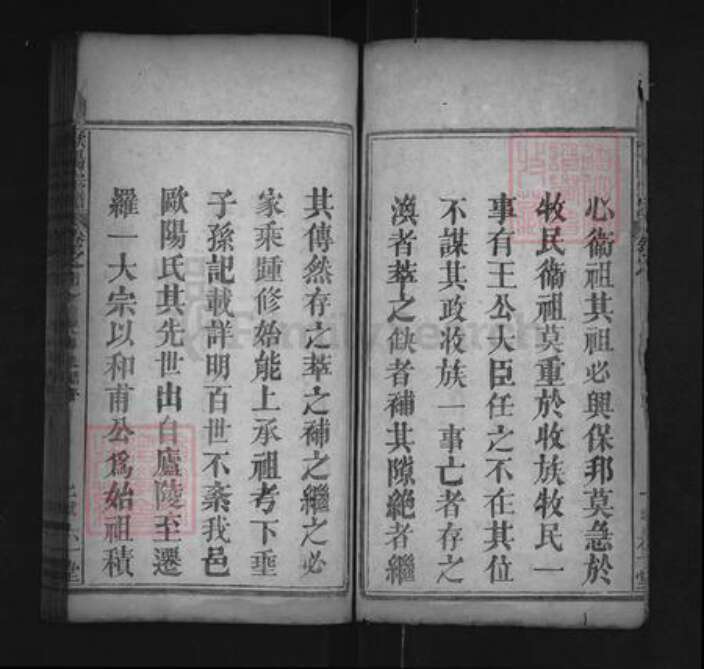 心衞祖其祖必興保邦莫急於
牧民衞祖莫重於收族牧民一
事有王公大臣任之不在其位
不謀其政收族一事亡者存之
渙者萃之缺者補其隙絕者繼
其傳然存之萃之補之繼之必
家乘踵修始能上承祖考下垂
子孫記載詳明百世不紊我邑
歐陽氏其先世出自廬陵至遷
羅一大宗以和甫公爲始祖積
FamilySearch